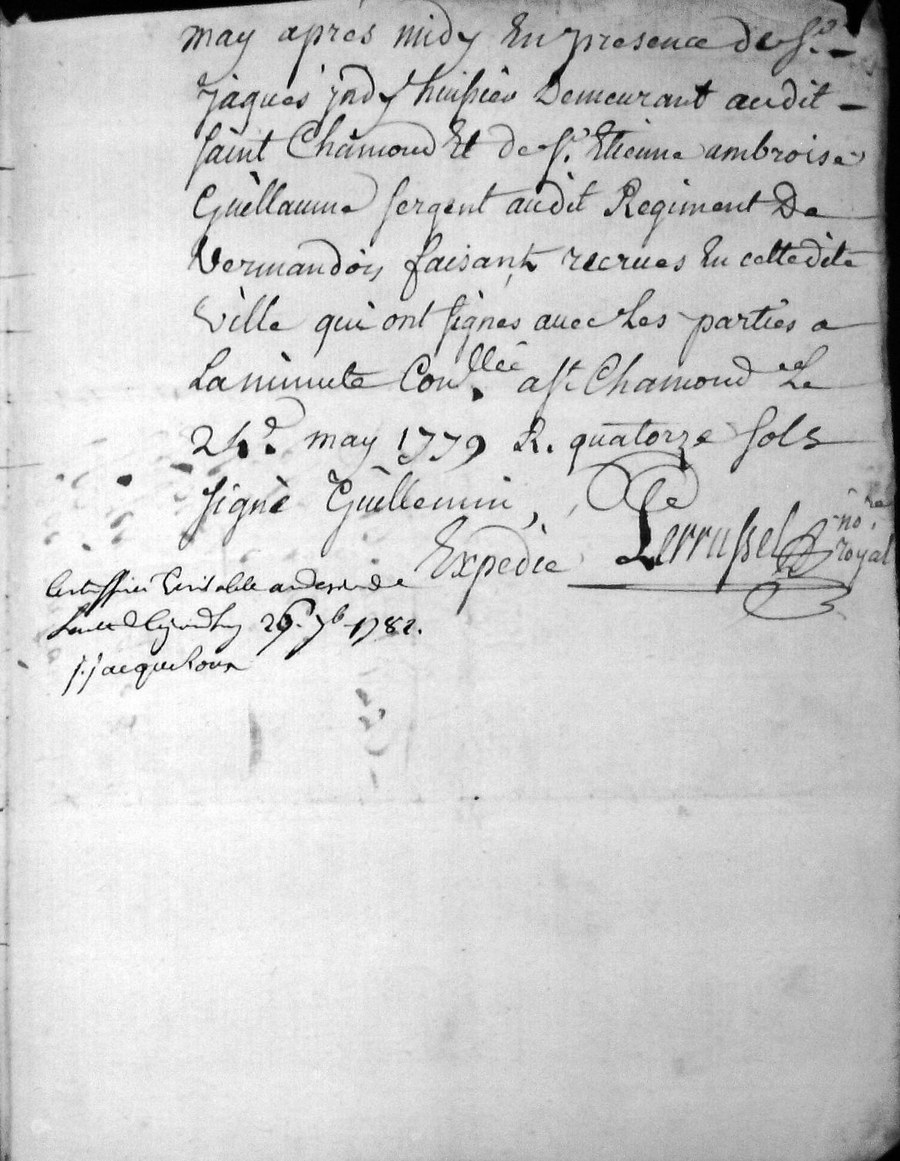 may après midy En presence de Sr.
Jaques jody huissier Demeurant audit
saint Chamond Et de Sr. Etienne ambroise
Guèllaume sergent audit Regiment De
Vermandois faisant recrues En cette dite
Ville qui ont signés avec Les parties a
La minute Conllée. a St Chamond Le
24e. may 1779 R. quatorze sols
signé Guèllemin,
Expediè Perrussel nore royal
Certiffié Veritable au desir de
26. 7b 1782.
J. jacque Roux